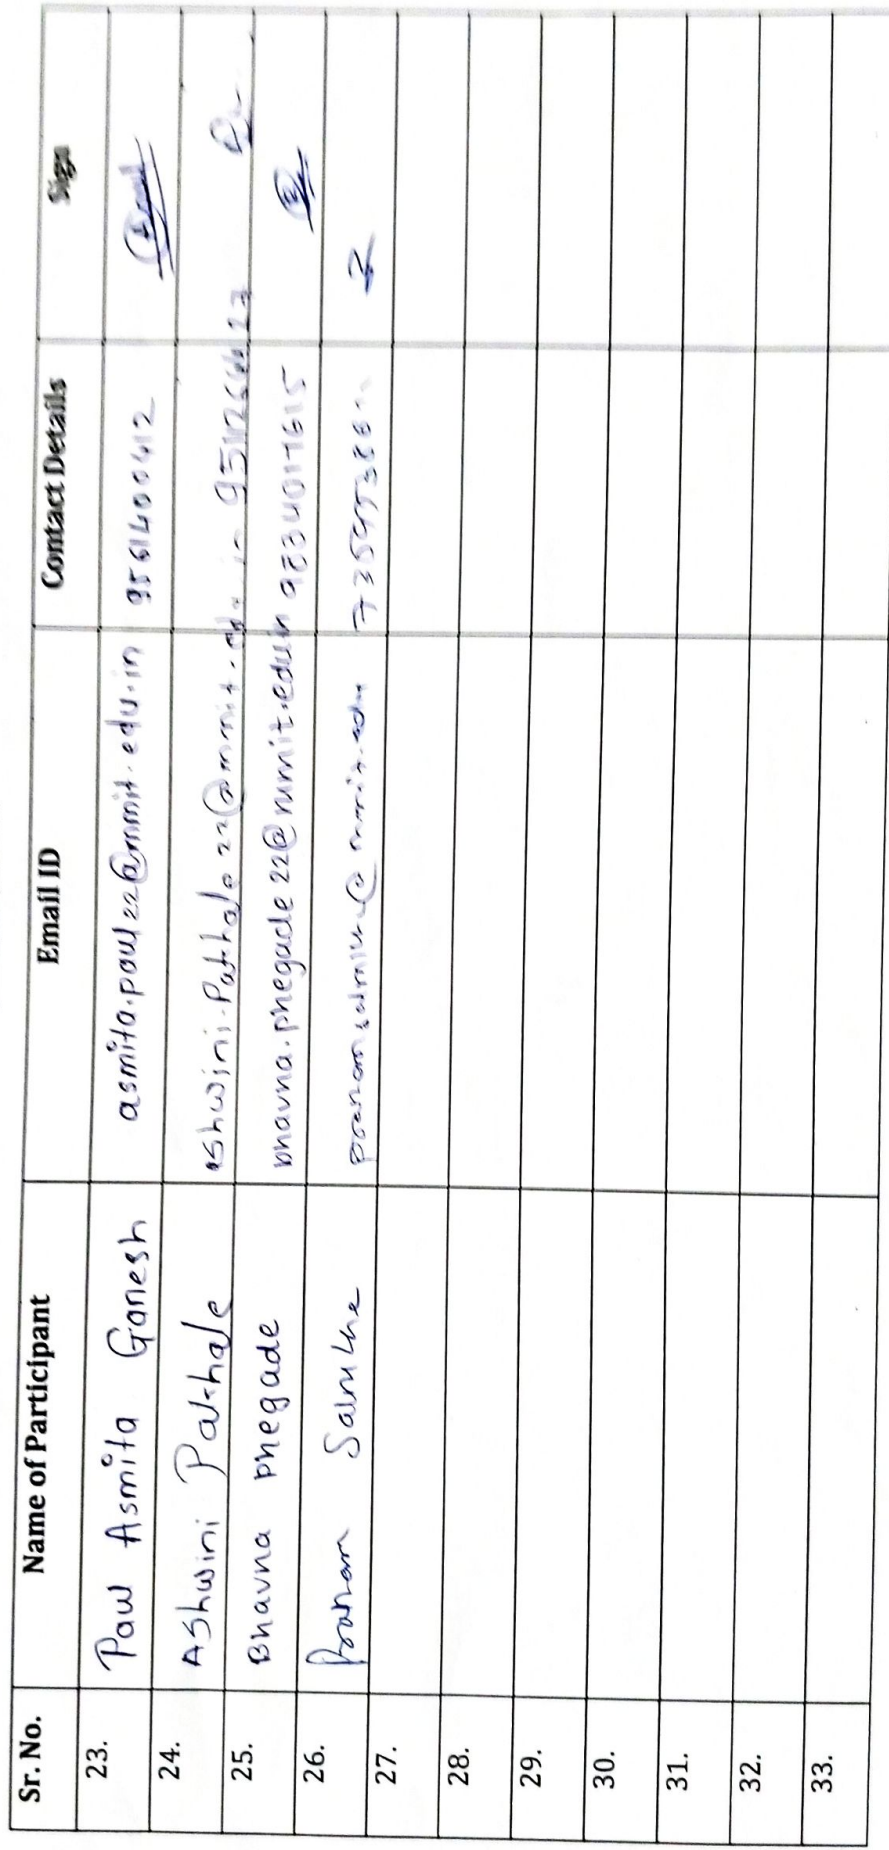 Sr. No. Name of Participant Email ID Contact Details Sign
23. Paul Asmita Ganesh asmita.paul22@mmit.edu.in 9561400412
24. Ashwini Pathale ashwini.Pathale22@mmit.edu.in
25. Bhavna Phegade bhavna.phegade22@mmit.edu.in
26. Pranam Salunkhe
27.
28.
29.
30.
31.
32.
33.